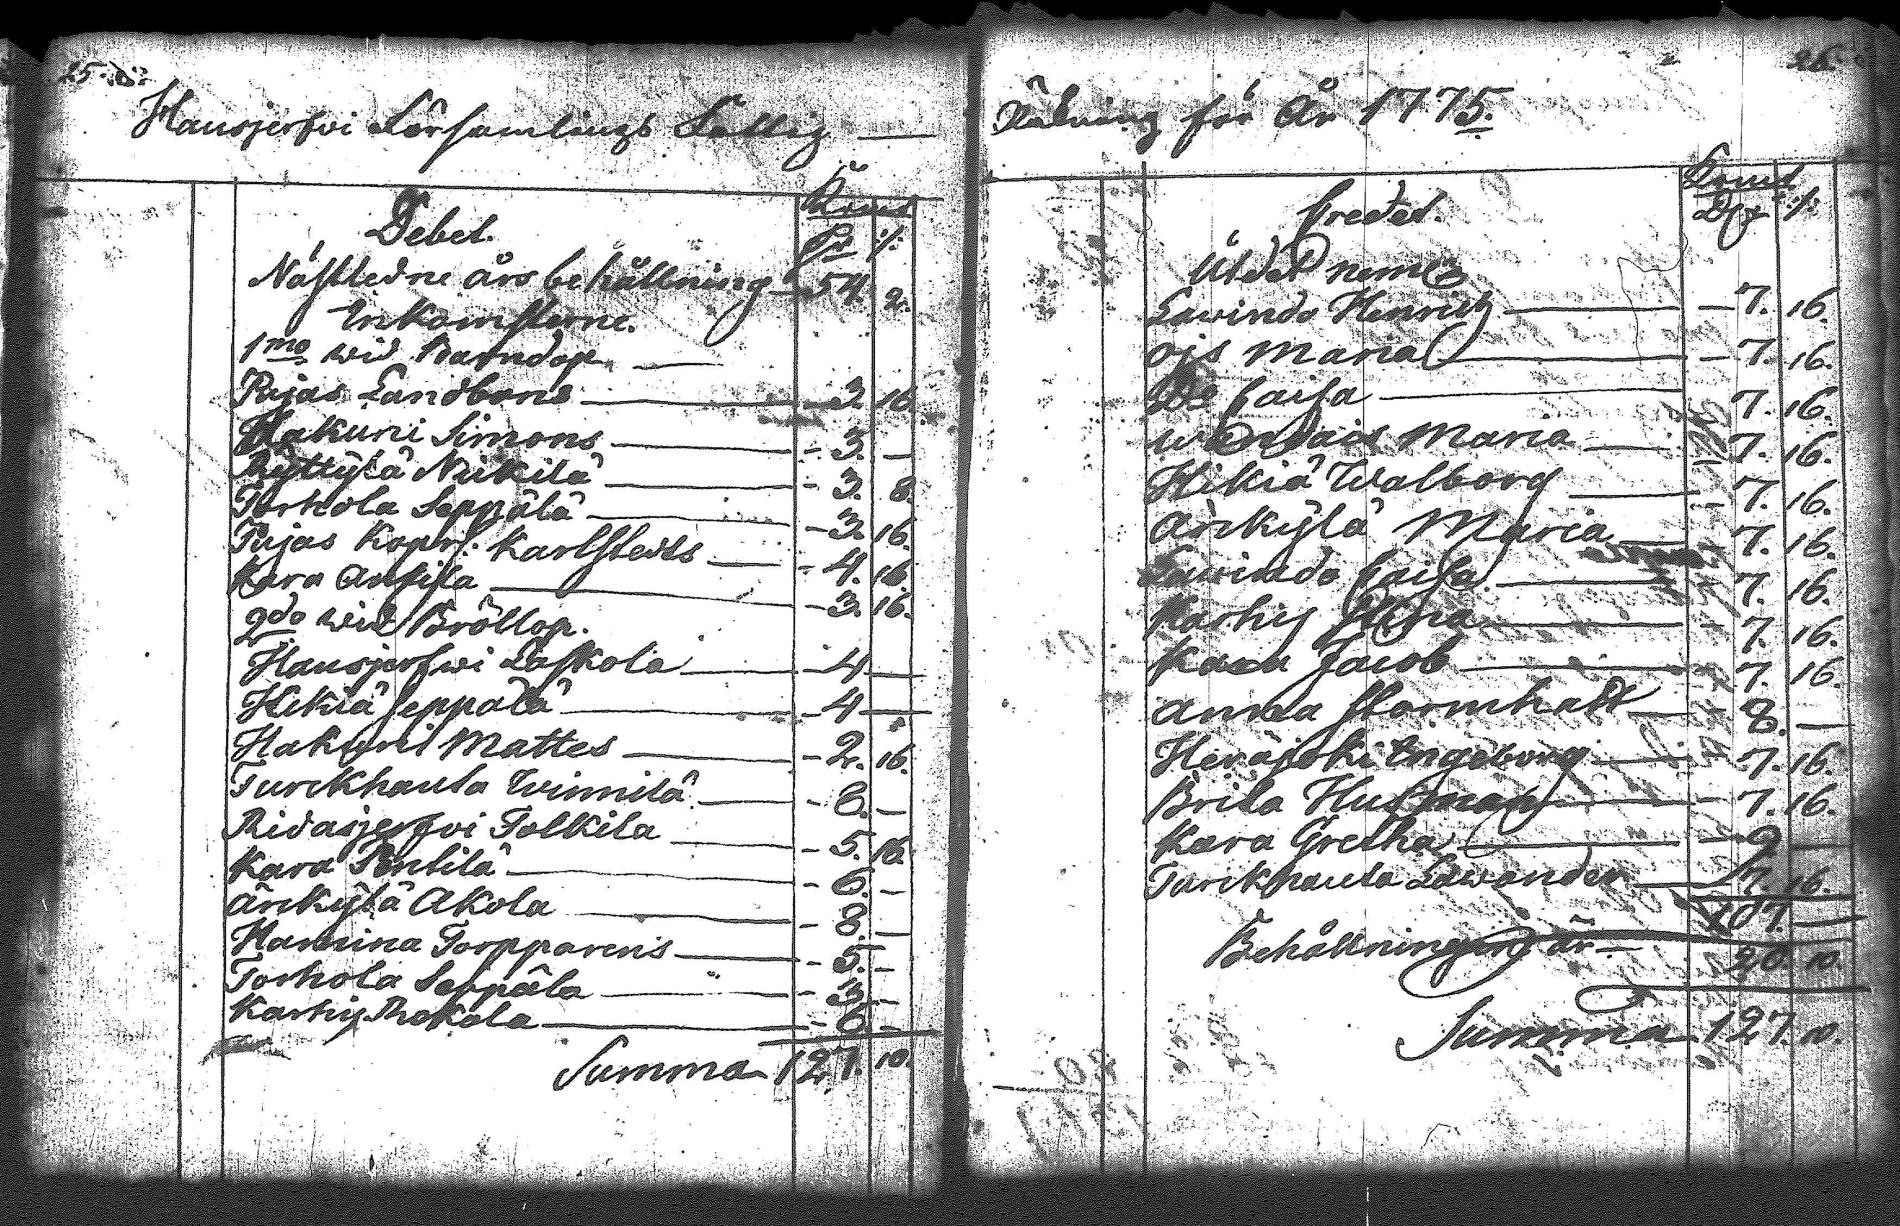 25.
Hausjerfvi Församlings Fattig
Debet.
Nästledne års behållning 54. 2.
Inkomsterne.
1mo wid Barndop
Pajas Landbond 3. 16.
Hakuni Simons 3. —
Ryttylä Nikkilä 3. 8.
Torhola Seppälä 3. 16.
Pajas Kopr: Karlstedts 4. 16.
Kara Anttila 3. 16.
2do wid Bröllop.
Hausjerfwi Laskola 4 —
Hikiä Seppälä 4 —
Hakuni Mattes 2. 16.
Turckhauta Winnilä 6. —
Ridasjerfvi Tolkila 5. 16.
Kara Penttilä 6. —
Ärikylä Akola 8. —
Hamina Torpparens 5. —
Torhola Seppälä 3. —
Karhij Prokola 6. —
Summa 127. 10.
26.
Räkning för År 1775.
Credet.
Utdet
Lavinda Henrich 7. 16.
Ojs Maria 7. 16.
Do Caisa 7. 16.
Maria 7. 16.
Hikiä Walborg 7. 16.
Ärikylä Maria 7. 16.
Lavinda Caisa 7. 16.
Karhij Stina 7. 16.
Kara Jacob 7. 16.
Anna Stormhatt 8. —
Herajoki Engeborg 7. 16.
Brita Husman 7. 16.
Kara Gretha 9 —
Turckhauta Lawander 7. 16.
107. —
Behållningen är 20. 10.
Summa 127. 10.